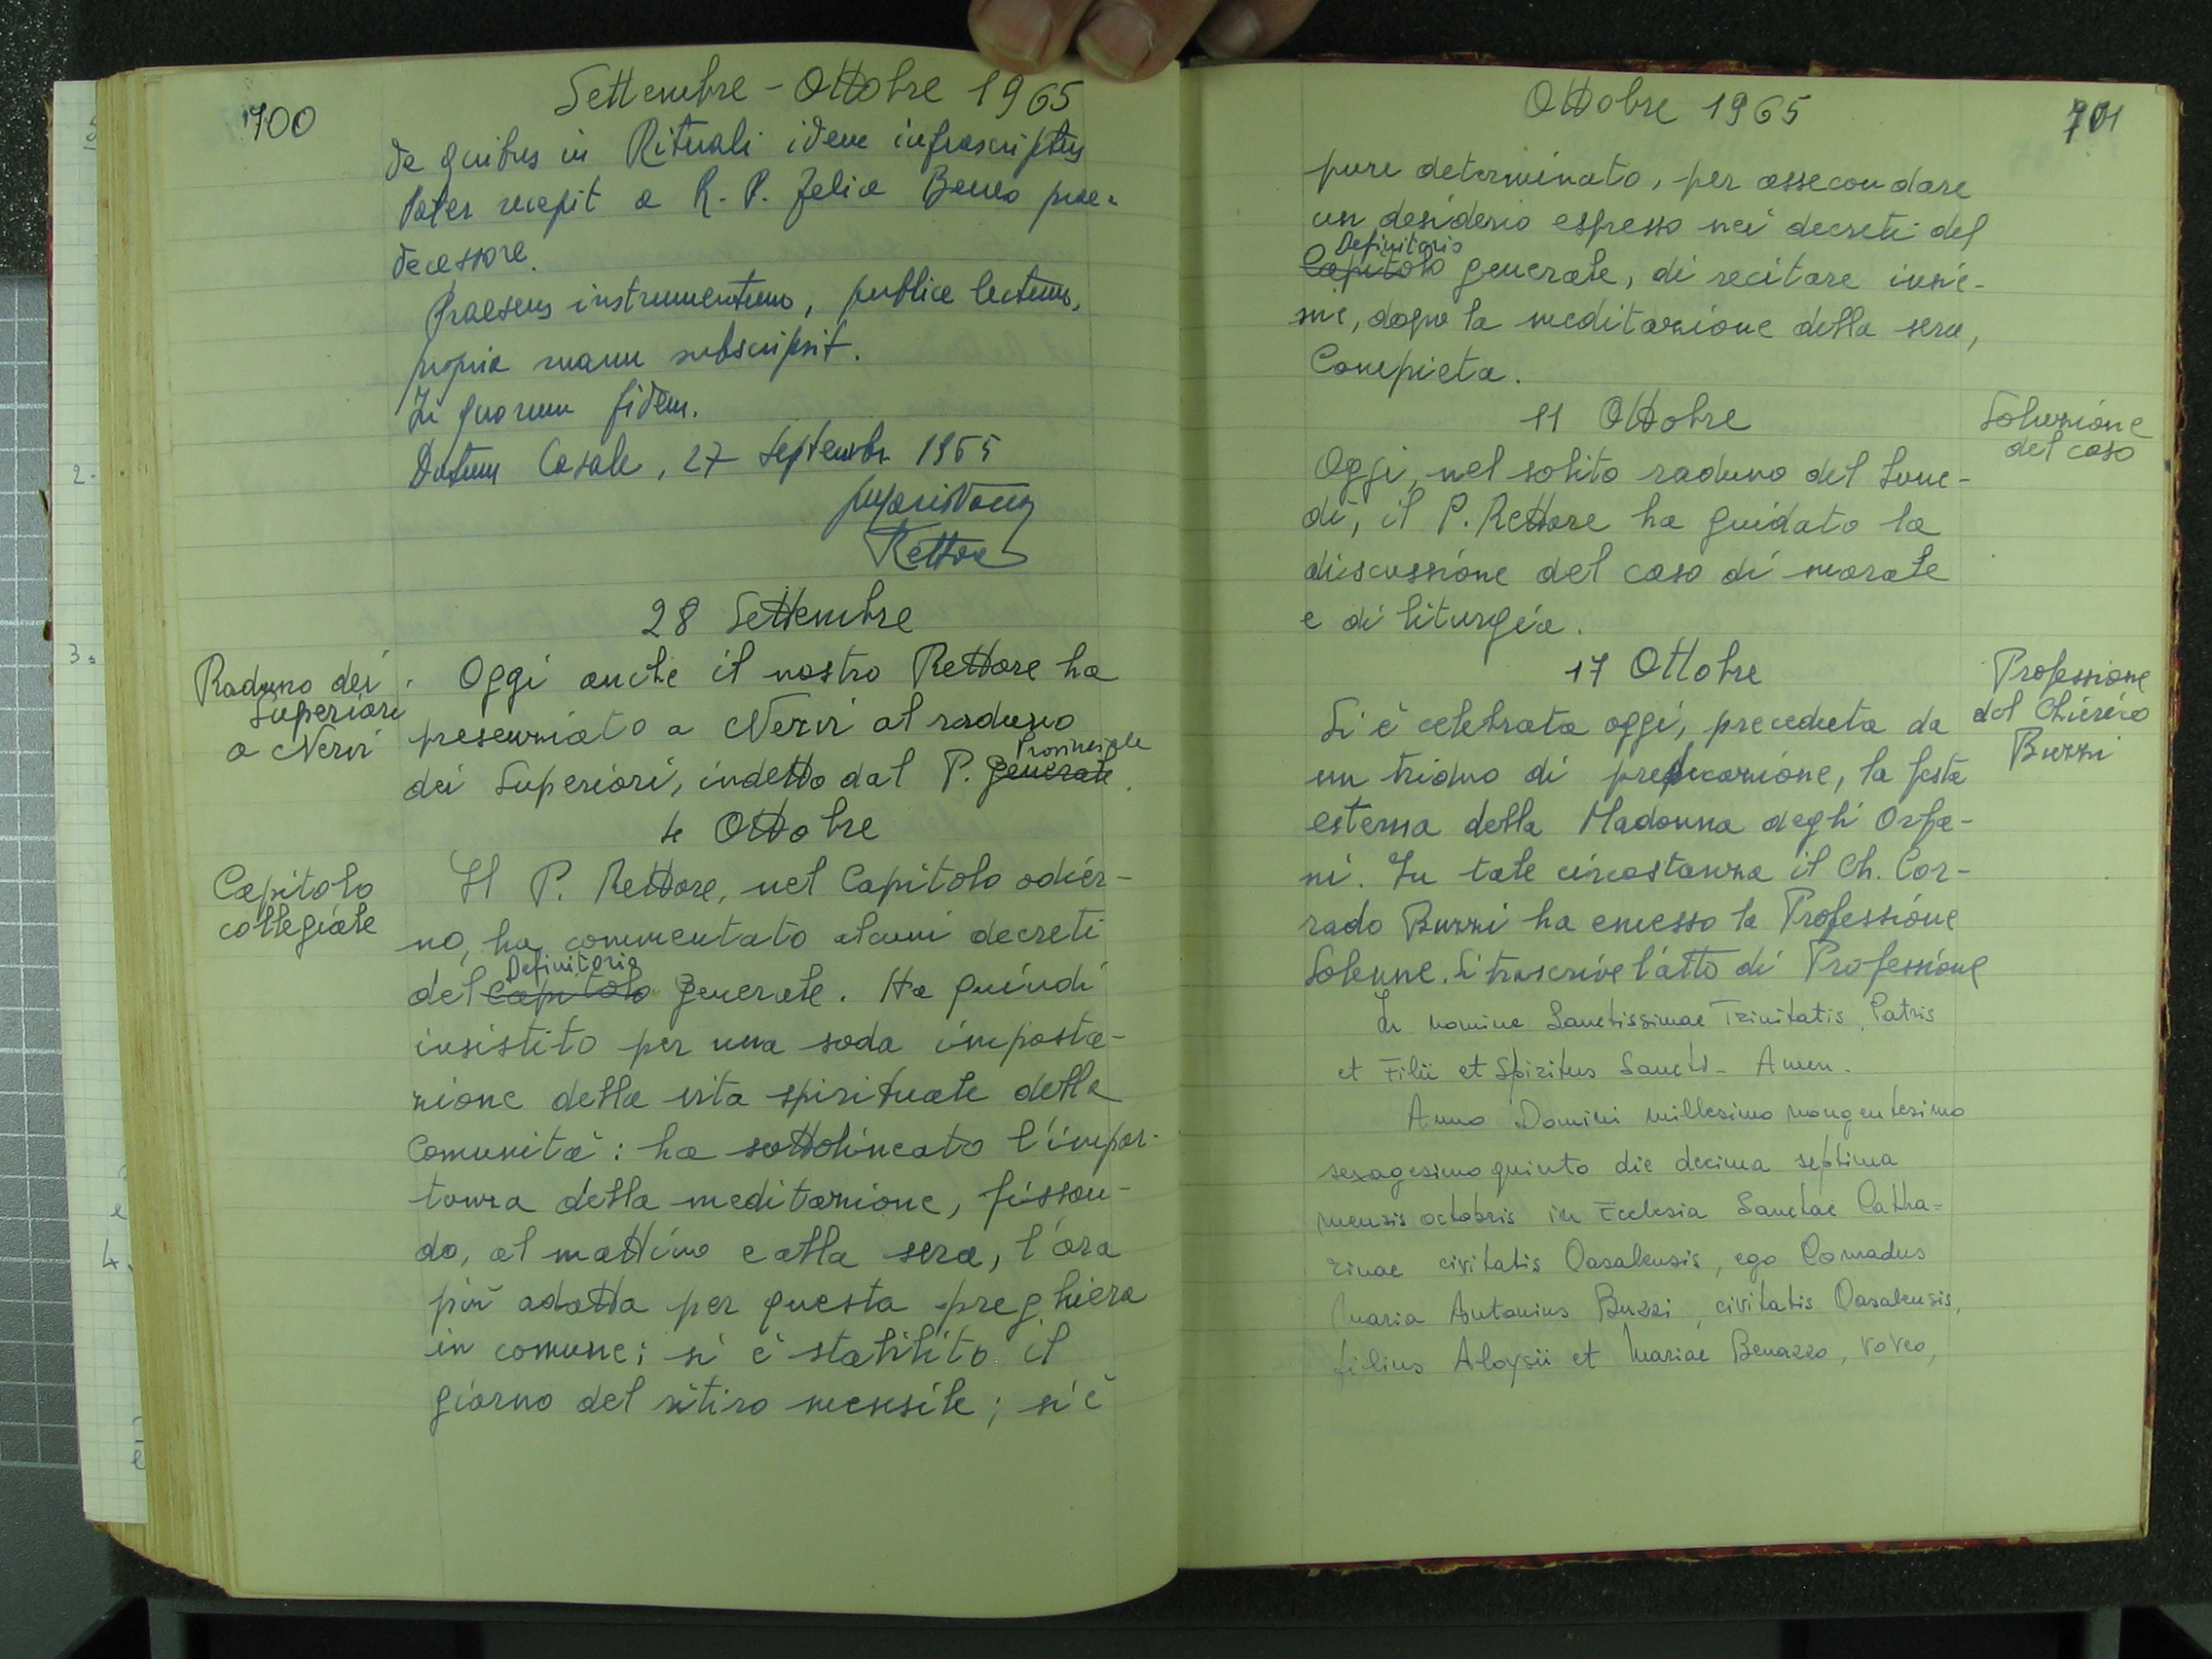 700
Settembre - Ottobre 1965
de quibus in Rituali idem infrascriptus
Pater recepit a R. P. Felice Beneo prae-
decessore.
Praesens instrumentum, publice lectum,
propria manu subscripsit.
In quorum fidem.
Datum Casale, 27 Septembr 1965
Rettore
28 Settembre
Raduno dei
Superiori
a Nervi
Oggi anche il nostro Rettore ha
presenziato a Nervi al raduno
Provinciale
dei Superiori, indetto dal P. generale.
4 Ottobre
Capitolo
collegiale
Il P. Rettore, nel Capitolo odier-
no, ha commentato alcuni decreti
Definitorio
del Capitolo generale. Ha quindi
insistito per una soda imposta-
zione della vita spirituale della
Comunità: ha sottolineato l'impor-
tanza della meditazione, fissan-
do, al mattino e alla sera, l'ora
più adatta per questa preghiera
in comune; si è stabilito il
giorno del ritiro mensile; si è
Ottobre 1965
701
pure determinato, per assecondare
un desiderio espresso nei decreti del
Definitorio
Capitolo generale, di recitare insie-
me, dopo la meditazione della sera,
Compieta.
11 Ottobre
Soluzione
del caso
Oggi, nel solito raduno del lune-
dì, il P. Rettore ha guidato la
discussione del caso di morale
e di liturgia.
17 Ottobre
Professione
del Chierico
Buzzi
Si è celebrata oggi, preceduta da
un triduo di predicazione, la festa
esterna della Madonna degli Orfa-
ni. In tale circostanza il Ch. Cor-
rado Buzzi ha emesso la Professione
Solenne. Si trascrive l'atto di Professione
In nomine Sanctissimae Trinitatis, Patris
et Filii et Spiritus Sancti - Amen.
Anno Domini millesimo nongentesimo
sexagesimo quinto die decima septima
mensis octobris in Ecclesia Sanctae Catha-
rinae civitatis Casalensis, ego Conradus
Maria Antonius Buzzi, civitatis Casalensis,
filius Aloysii et Mariae Benazzo, voveo,